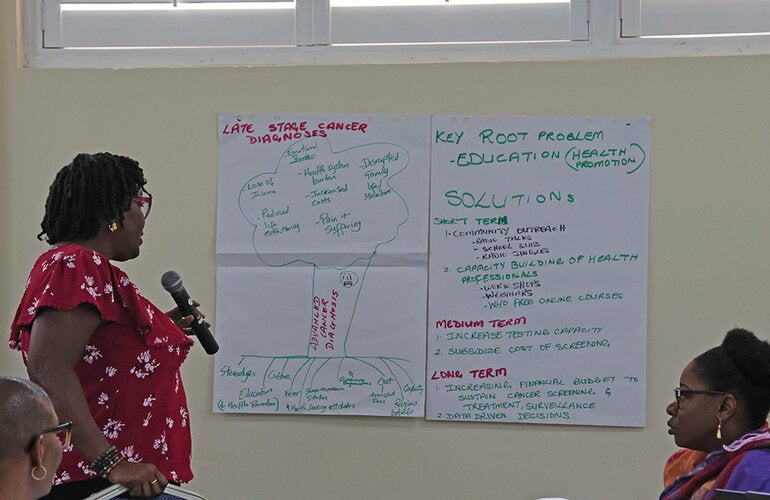 LATE STAGE CANCER
DIAGNOSES
Emotional
- Loss of
Income
- Health system
burden
- Disrupted
family
structure
- Increased
costs
- Reduced
life
expectancy
- Pain +
Suffering
ADVANCED
CANCER
DIAGNOSIS
Stereotypes
Culture
Education
(↓ Health Promotion)
Fear
Cost
Religious
beliefs
Capacity
KEY ROOT PROBLEM
- EDUCATION (HEALTH
PROMOTION)
SOLUTIONS
SHORT TERM
1. COMMUNITY OUTREACH
- RADIO TALKS
- SCHOOL QUIZ
- RADIO JINGLES
2. CAPACITY BUILDING OF HEALTH
PROFESSIONALS
- WORK SHOPS
- WEBINARS
- WHO FREE ONLINE COURSES
MEDIUM TERM
1. INCREASE TESTING CAPACITY
2. SUBSIDIZE COST OF SCREENING
LONG TERM
1. INCREASING FINANCIAL BUDGET TO
SUSTAIN CANCER SCREENING &
TREATMENT, SURVEILLANCE
2. DATA DRIVEN DECISIONS